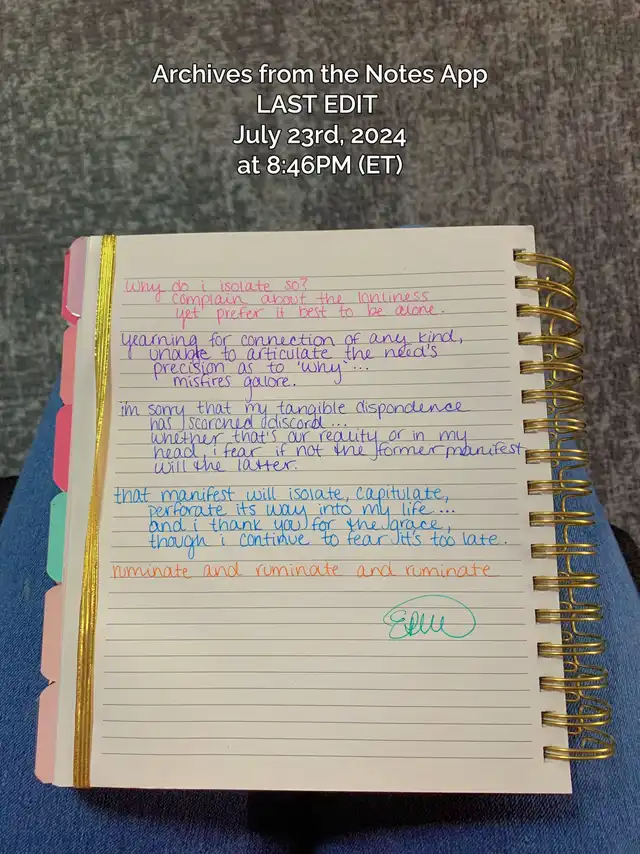 Archives from the Notes App
LAST EDIT
July 23rd, 2024
at 8:46PM (ET)
why do i isolate so?
complain about the lonliness
yet prefer it best to be alone.
yearning for connection of any kind,
unable to articulate the need's
precision as to 'why'...
misfires galore.
i'm sorry that my tangible dispondence
has scorched discord...
whether that's our reality or in my
head, i fear if not the former manifest
will the latter.
that manifest will isolate, capitulate,
perforate its way into my life...
and i thank you for the grace,
though i continue to fear it's too late.
ruminate and ruminate and ruminate